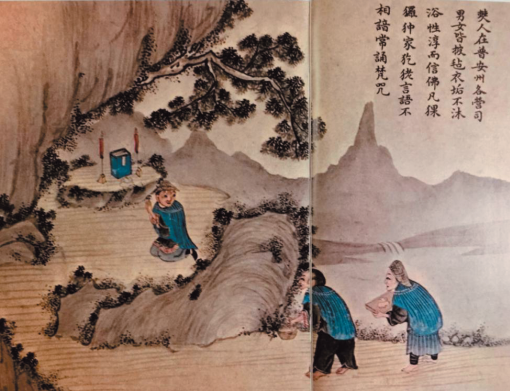 僰人在普安州各營司
男女皆披毡衣垢不沐
浴性淳而信佛凡猓
玀狆家犵狫言語不
相諳常誦梵咒